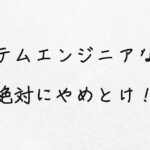 テムエンジニアな
絶対にやめとけ!